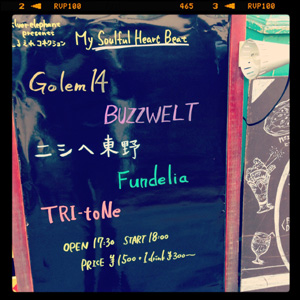 2 ▸ RVP100 465 3 ◂ RVP100
presents
My Soulful Heart Beat
Golem14
BUZZWELT
ニシへ東野
Fundelia
TRI-toNe
OPEN 17:30 START 18:00
PRICE ¥1500+1drink ¥300〜